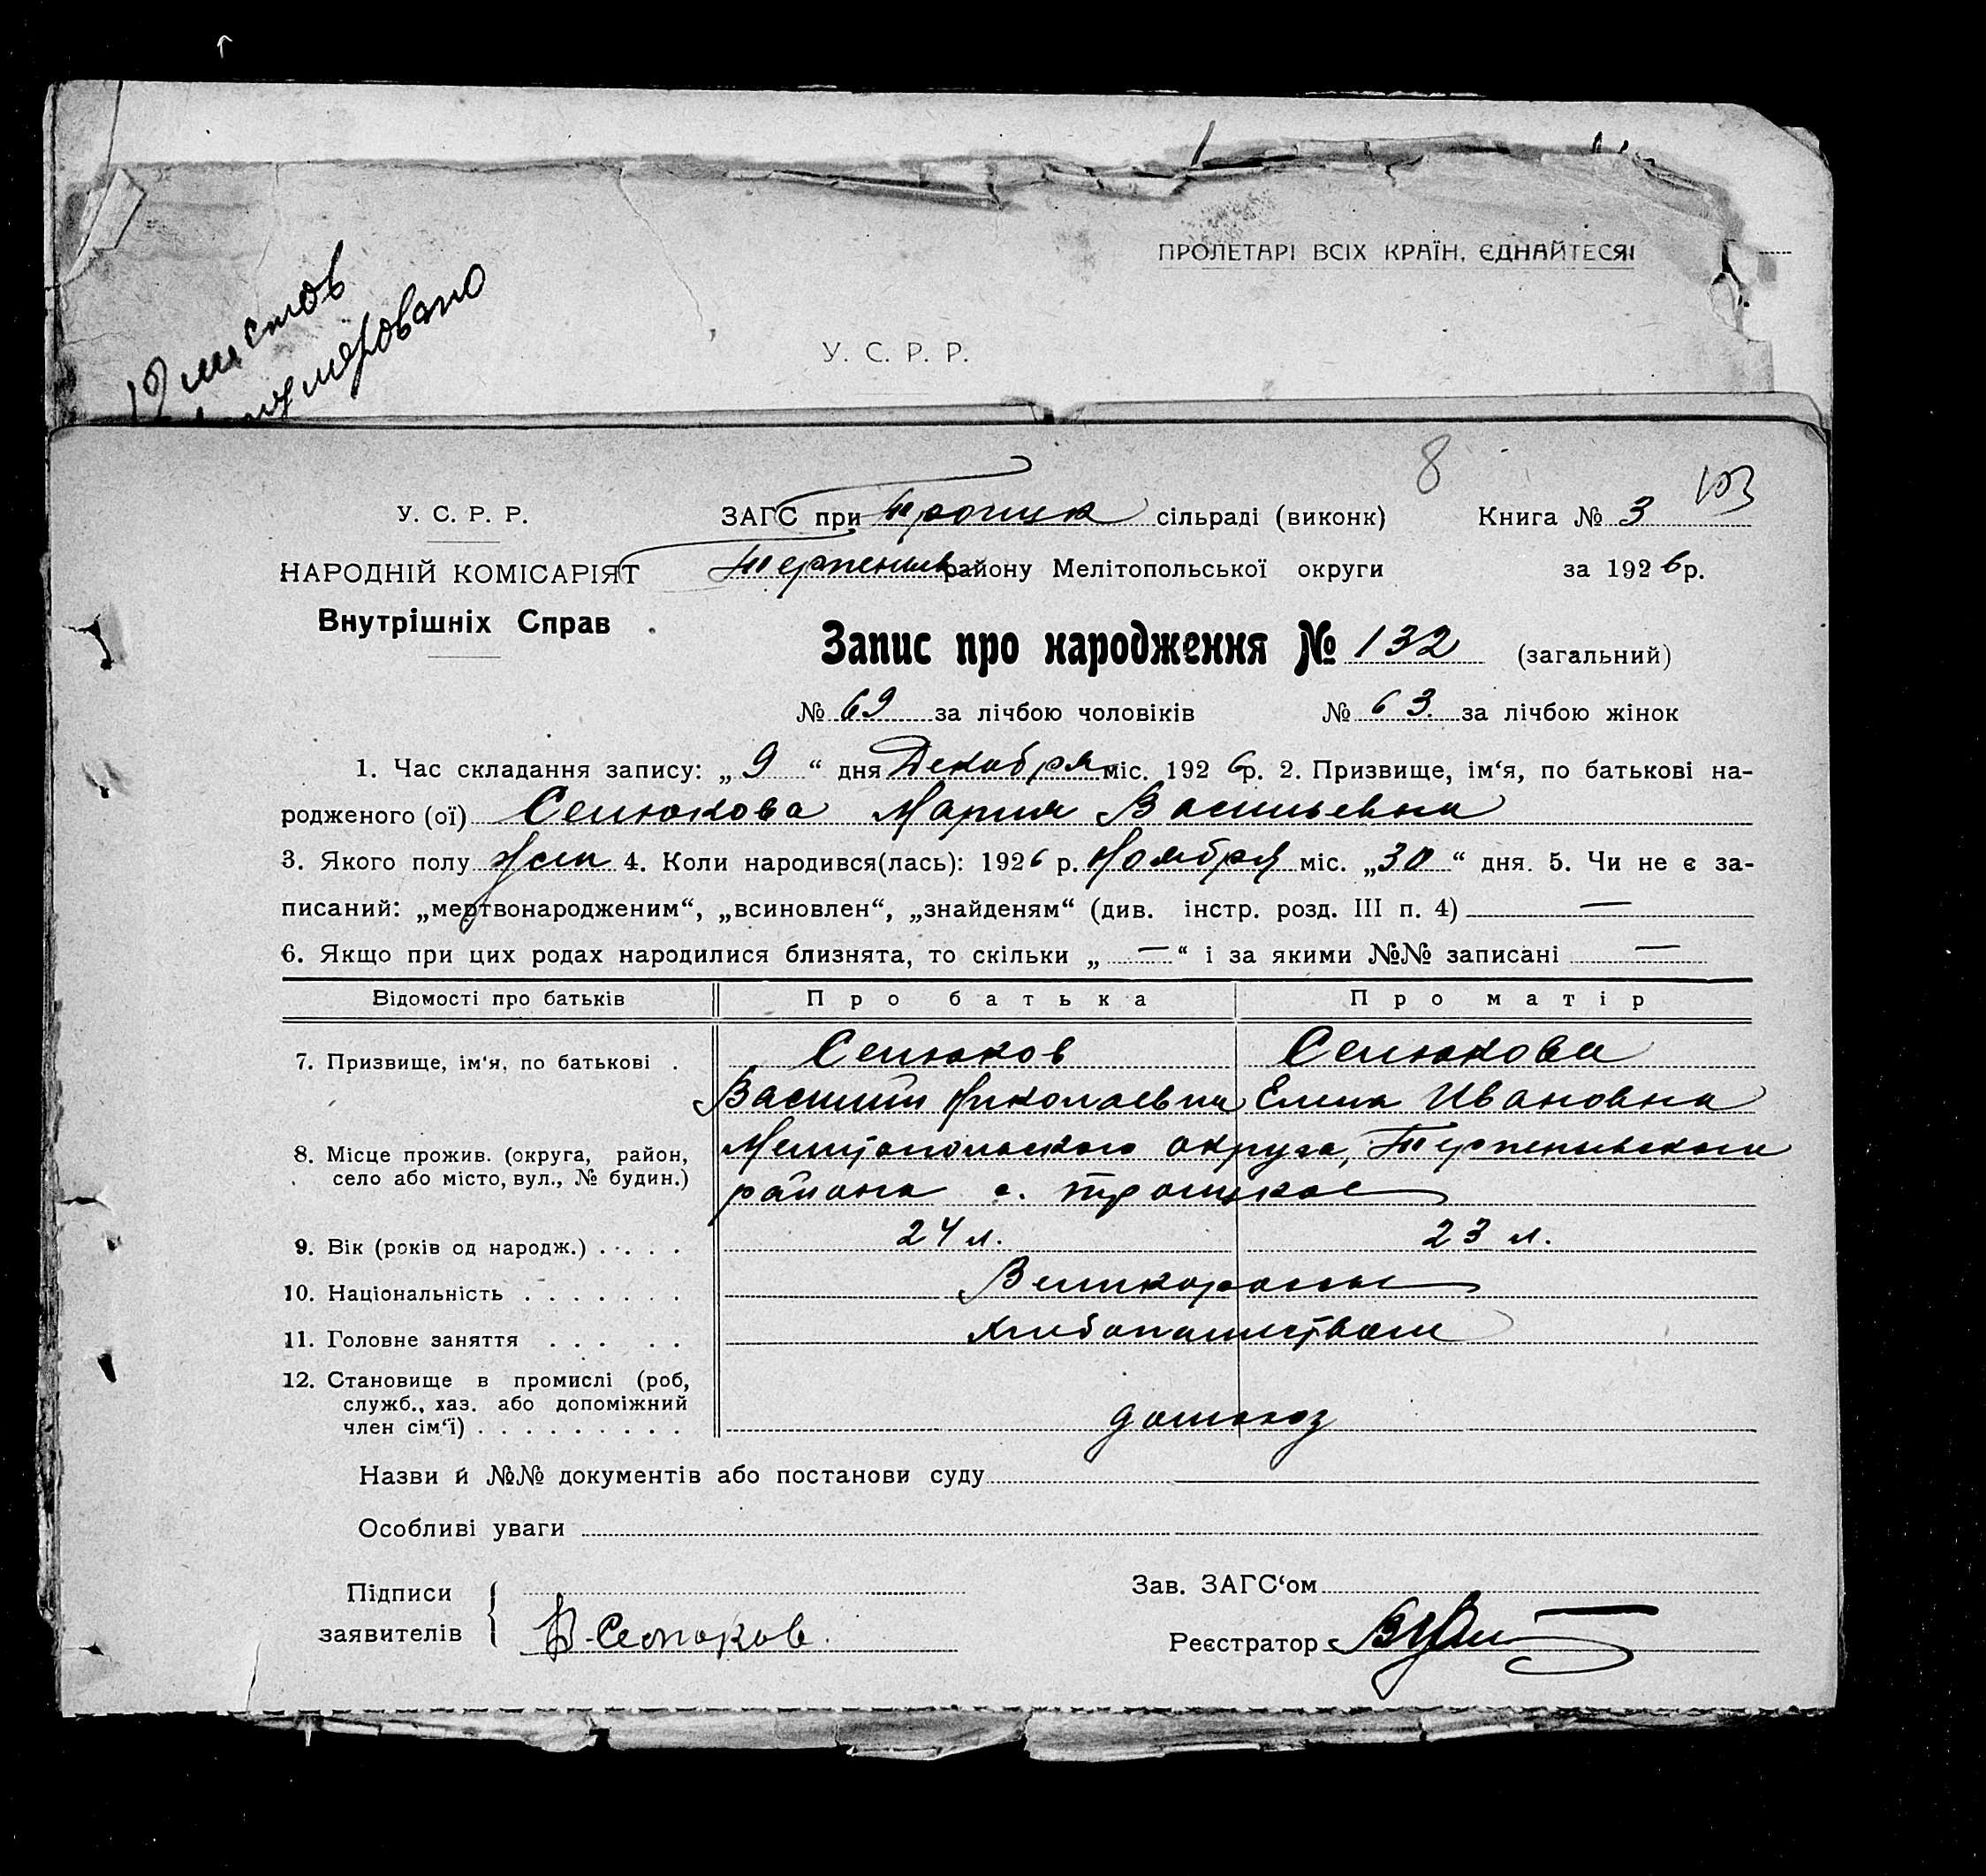 19 листов
пронумеровано
ПРОЛЕТАРІ ВСІХ КРАЇН, ЄДНАЙТЕСЯ!
У. С. Р. Р.
8
103
У. С. Р. Р. ЗАГС при Троицк сільраді (виконк) Книга № 3
НАРОДНІЙ КОМІСАРІЯТ Терпенив району Мелітопольської округи за 1926 р.
Внутрішніх Справ
Запис про народження № 132 (загальний)
№ 69 за лічбою чоловіків № 63 за лічбою жінок
1. Час складання запису: „9“ дня Декабря міс. 1926 р. 2. Призвище, ім‘я, по батькові на-
родженого (ої) Селюкова Мария Васильевна
3. Якого полу жен 4. Коли народився(лась): 1926 р. Ноября міс. „30“ дня. 5. Чи не є за-
писаний: „мертвонародженим“, „всиновлен“, „знайденям“ (див. інстр. розд. III п. 4) —
6. Якщо при цих родах народилися близнята, то скільки „—“ і за якими №№ записані —
Відомості про батьків Про батька Про матір
7. Призвище, ім‘я, по батькові . Селюков Селюкова
Василий Николаевич Елена Ивановна
8. Місце прожив. (округа, район, Мелитопольского округа, Терпеньевского
село або місто, вул., № будин.) района с. Троицкое
9. Вік (років од народж.) . . . . . 24 л. 23 л.
10. Національність . . . . . . . Великороссы
11. Головне заняття . . . . . Хлебопашеством
12. Становище в промислі (роб,
служб., хаз. або допоміжний
член сім‘ї) . . . . . . . . . домохоз
Назви й №№ документів або постанови суду
Особливі уваги
Підписи Зав. ЗАГС‘ом
заявителів В. Селюков. Реєстратор